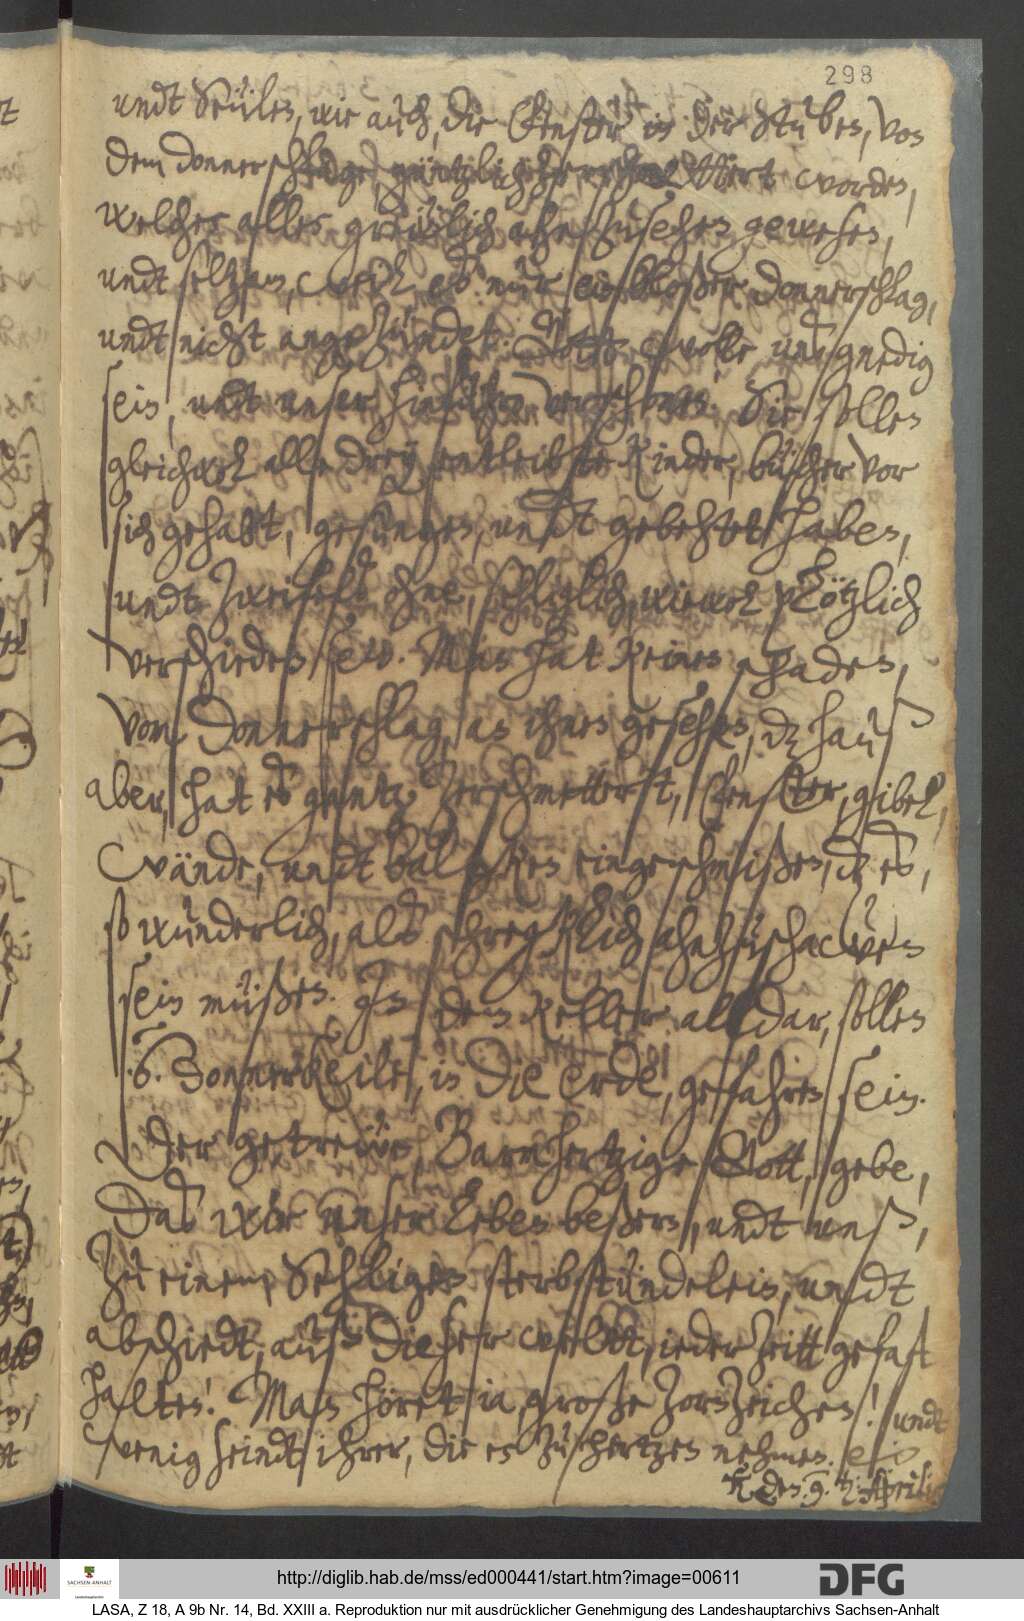 298
undt Seülen, wie auch, die Fenster in der Stuben, von
dem donnerschlage, gäntzlich zerschmettert worden,
welches alles greẅlich anzusehen gewesen,
undt seltzam, weil es nur ein bloßer donnerschlag,
undt nicht angezündet. Gott wolle uns gnedig
sein, undt unser hinfüro verschonen. Sie sollen
gleichwol alle drey entleibte Kinder, bücher vor
sich gehabt, gesungen, undt gebehtet haben,
undt zweifels ohne, sehliglich, wiewol plötzlich
verschieden sein. Man hat keinen schaden,
vom Donnerschlag, an ihnen gesehen, dz hauß
aber, hat es gantz zerschmettert, Fenster, gibel,
wände, undt balcken eingeschmißen, dz es,
so wunderlich, als schregklich anzuschawen
sein müßen. In dem Keller alldar, sollen
.6. Donnerkeile, in die erde, gefahren sein.
Der getreüe, Barmhertzige Gott, gebe,
Das wir unser Leben beßern, undt unß,
zu einem Sehligen sterbstündelein, undt
abschiedt, auß dieser weldt, ieder zeitt gefast
halten! Man höret ia, große zornzeichen! undt
wenig seindt ihrer, die es zu hertzen nehmen.
den .9. Aprilis
http://diglib.hab.de/mss/ed000441/start.htm?image=00611
SACHSEN-ANHALT
DFG
LASA, Z 18, A 9b Nr. 14, Bd. XXIII a. Reproduktion nur mit ausdrücklicher Genehmigung des Landeshauptarchivs Sachsen-Anhalt